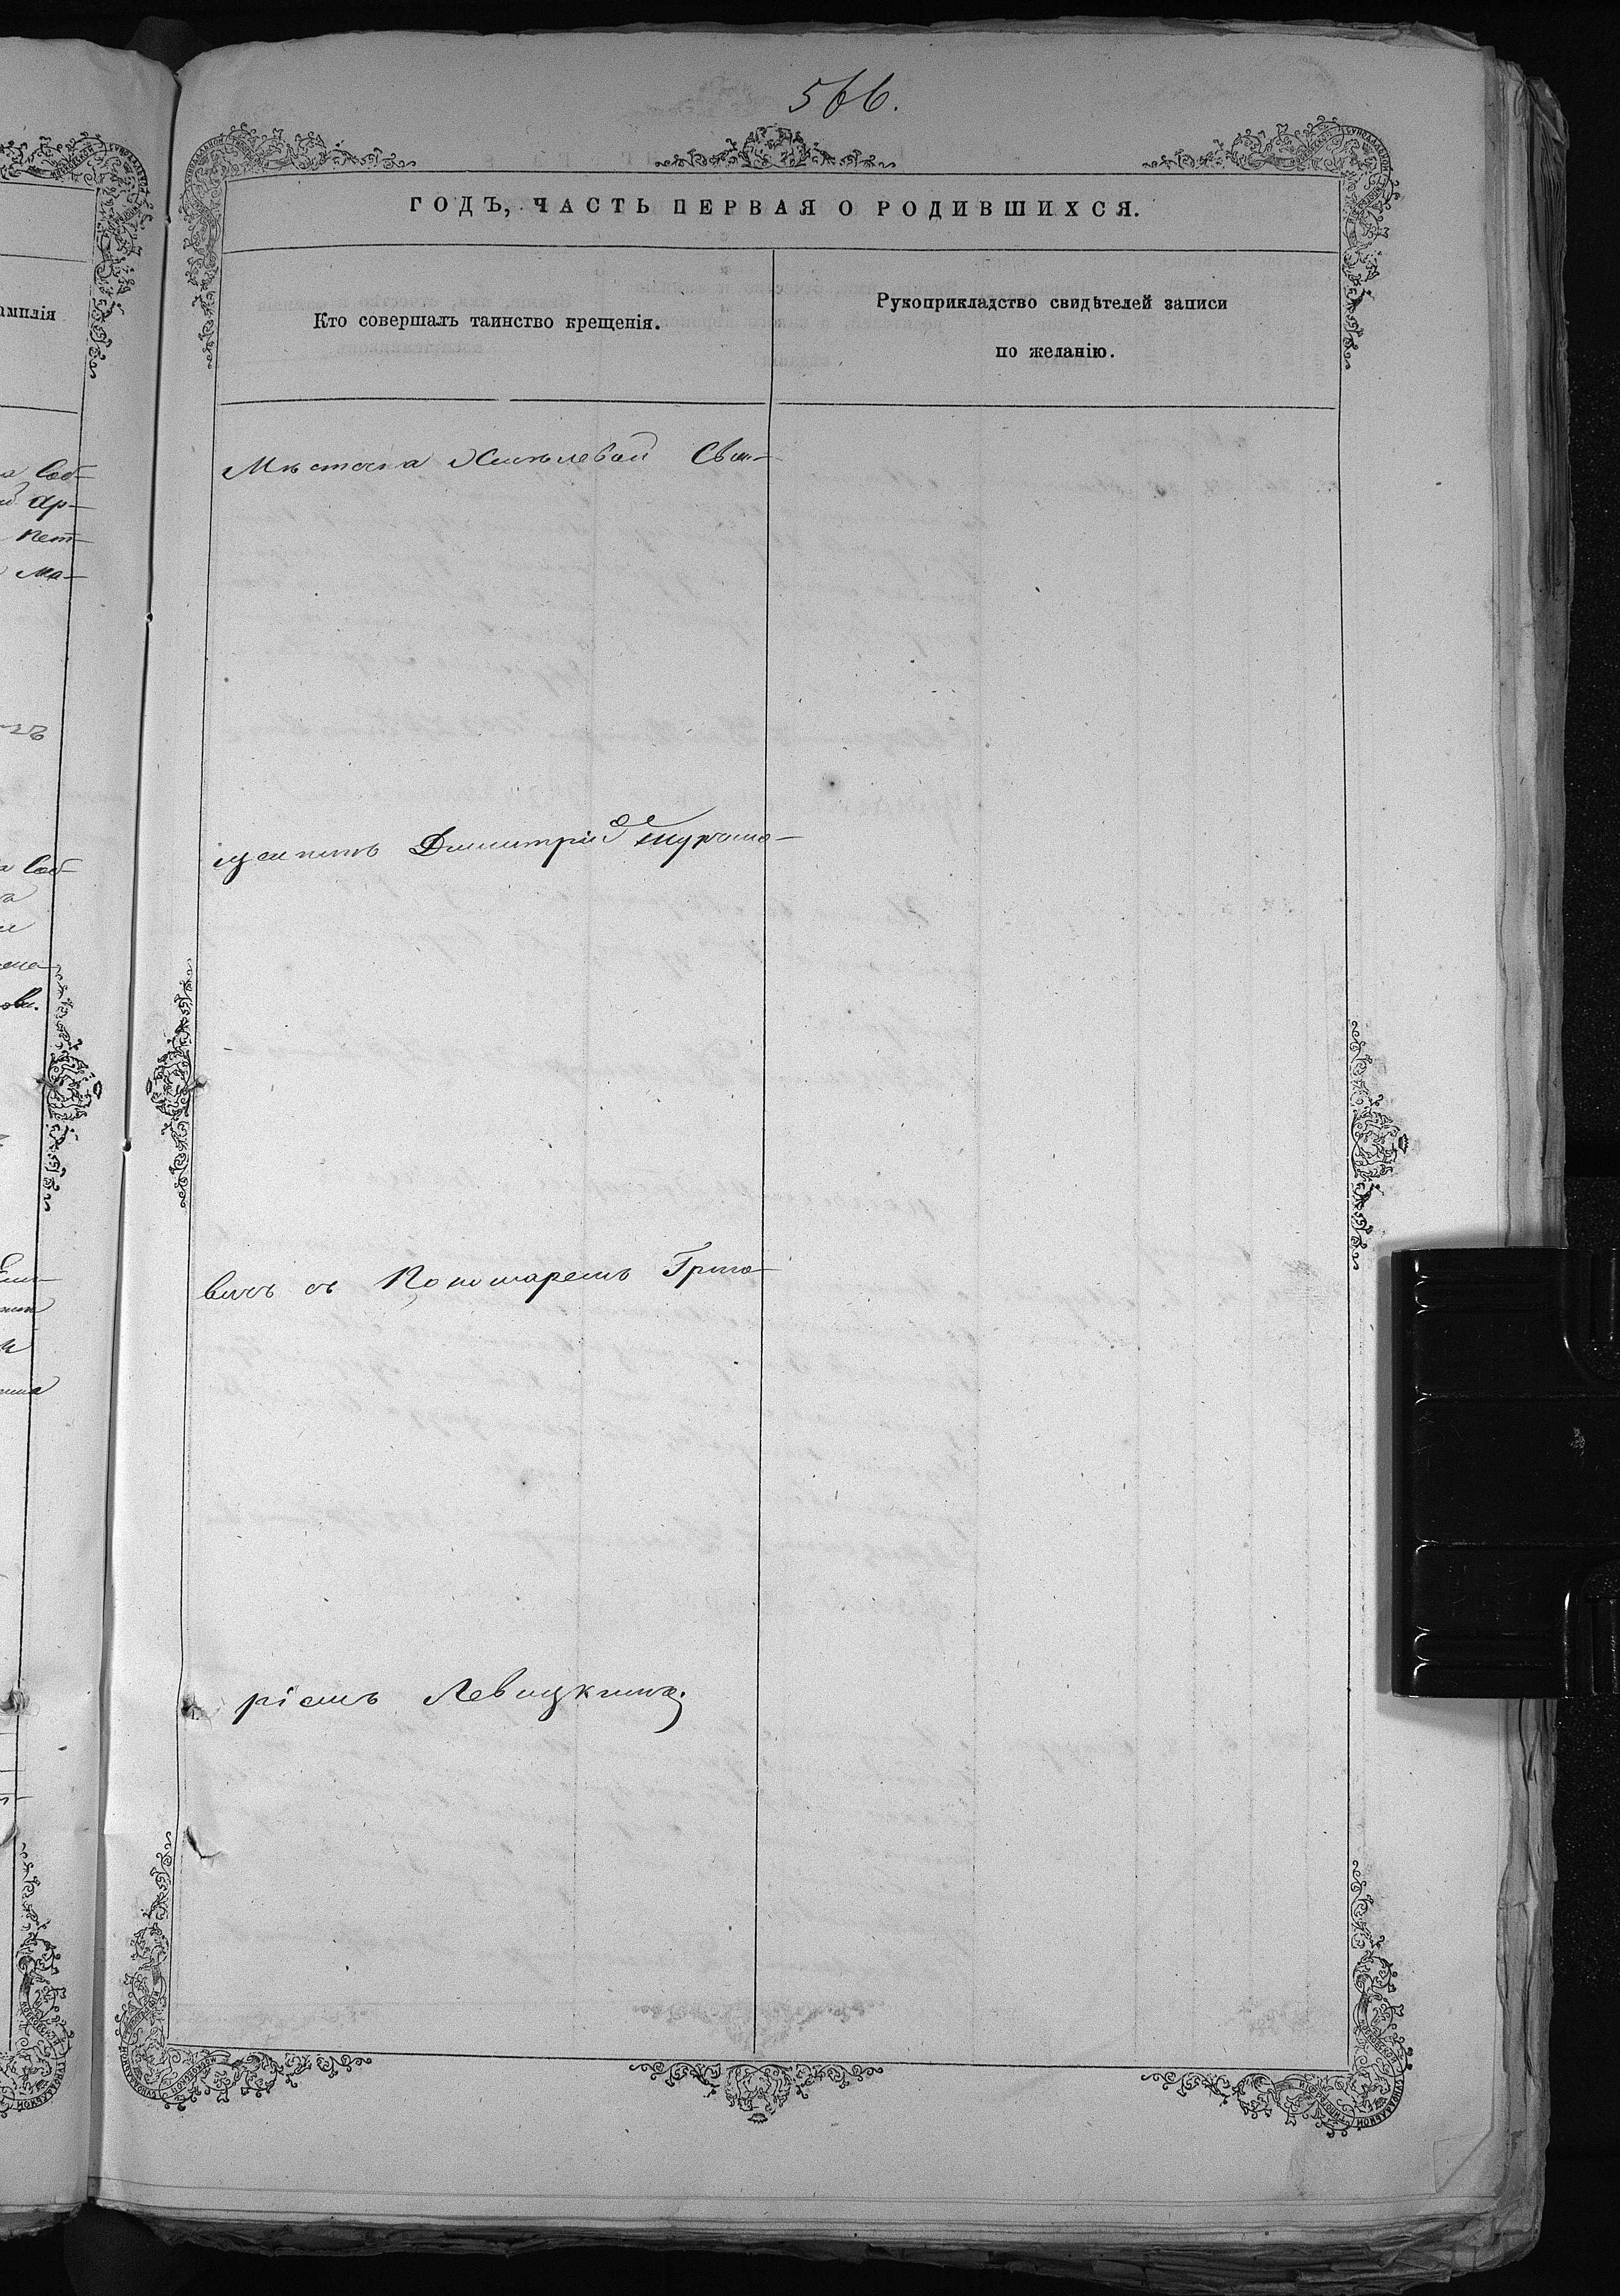 566.
ГОДЪ, ЧАСТЬ ПЕРВАЯ О РОДИВШИХСЯ.
Кто совершалъ таинство крещенія.
Рукоприкладство свидѣтелей записи
по желанію.
Мѣстечка Хмѣлевой Свя-
щенникъ Димитрій
вичъ съ Пономаремъ Григо-
ріемъ Левицкимъ.
амилія
Соб-
Ар-
Пет-
Ма-
Соб-